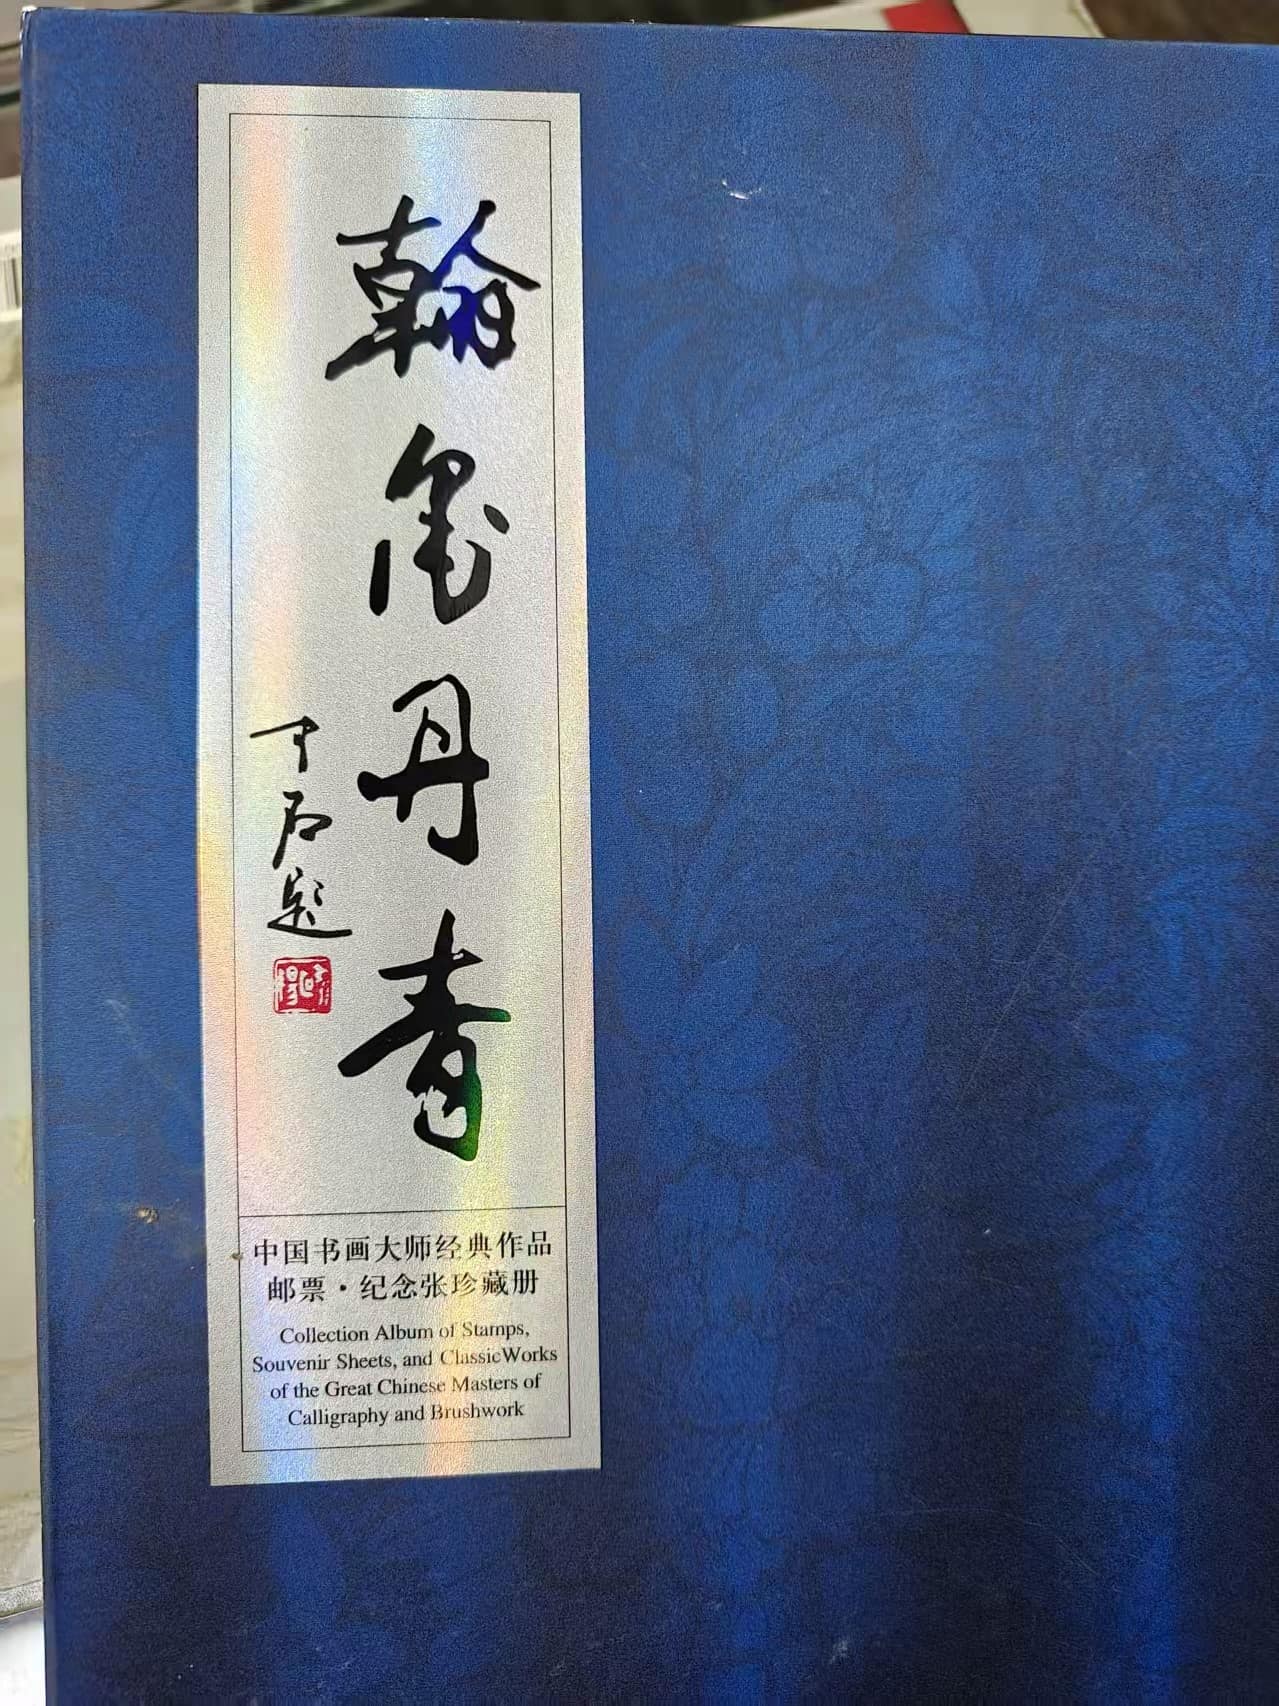 翰墨丹青
中石题
中国书画大师经典作品
邮票·纪念张珍藏册
Collection Album of Stamps,
Souvenir Sheets, and ClassicWorks
of the Great Chinese Masters of
Calligraphy and Brushwork